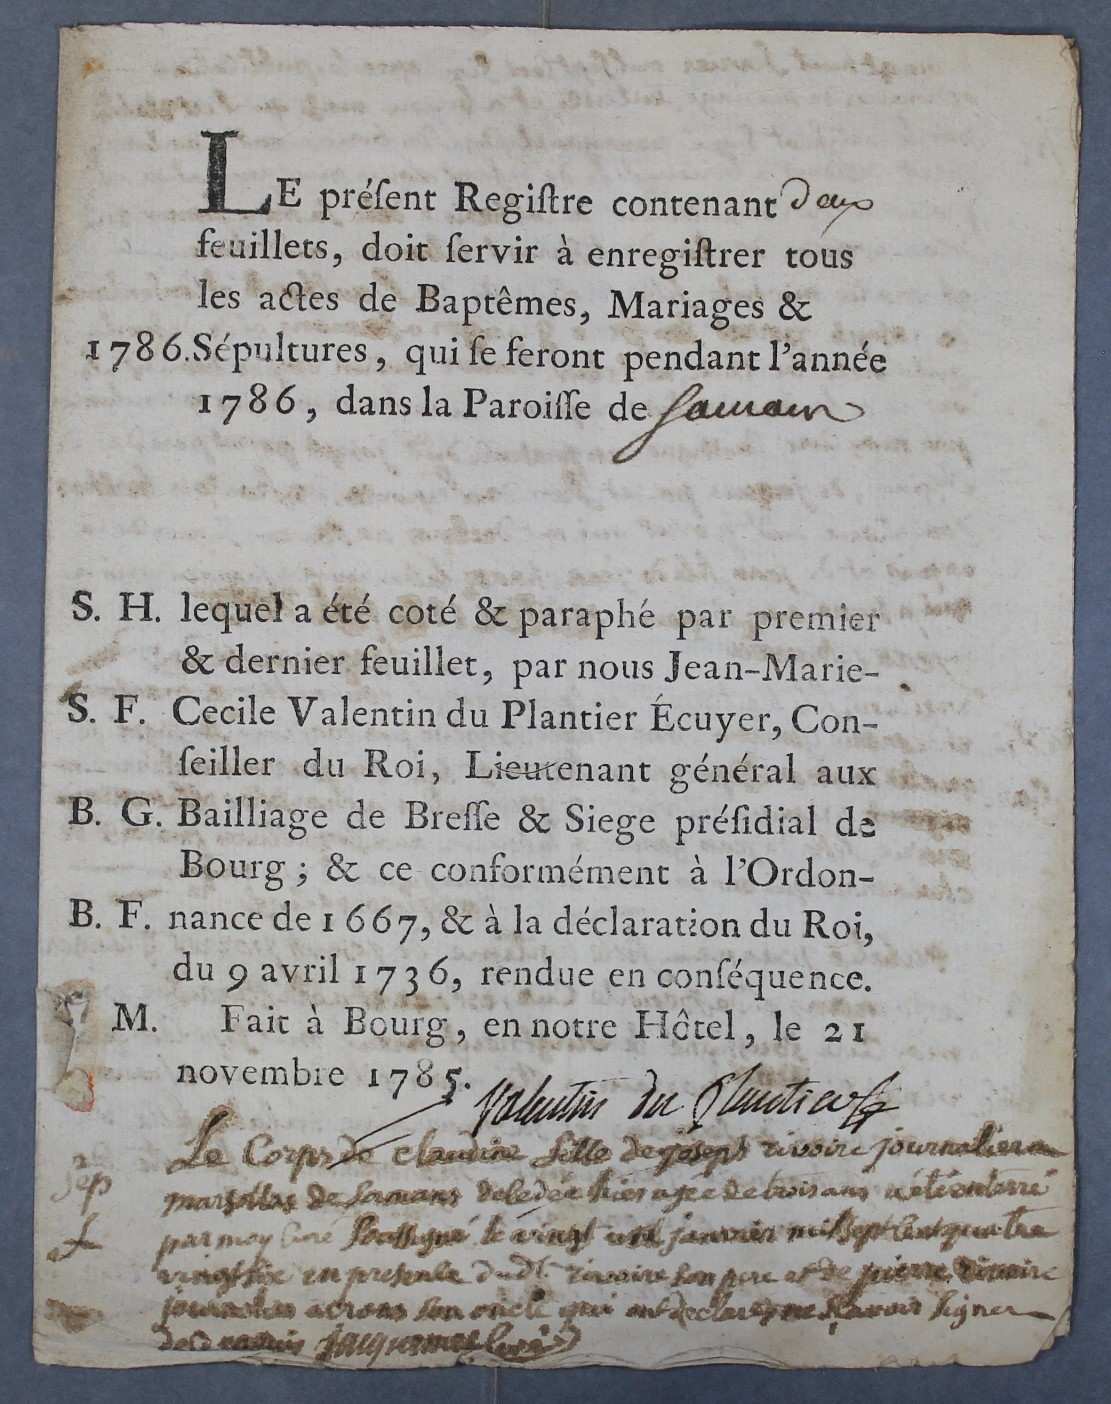 LE préſent Regiſtre contenant deux
feuillets, doit ſervir à enregiſtrer tous
les actes de Baptêmes, Mariages &
1786. Sépultures, qui ſe feront pendant l'année
1786, dans la Paroiſſe de
S. H. lequel a été coté & paraphé par premier
& dernier feuillet, par nous Jean-Marie-
S. F. Cecile Valentin du Plantier Écuyer, Con-
ſeiller du Roi, Lieutenant général aux
B. G. Bailliage de Breſſe & Siege préſidial de
Bourg; & ce conformément à l'Ordon-
B. F. nance de 1667, & à la déclaration du Roi,
du 9 avril 1736, rendue en conſéquence.
M. Fait à Bourg, en notre Hôtel, le 21
novembre 1785. Valentin du Plantier
Le Corps de claudine fille de joseph rivoire journalier a
de decedée hier agée de trois ans a été enterré
par moy Curé Soussigné le vingt un janvier mil sept Cent quatre
vingt six en presence dudt. rivoire son pere et de pierre rivoire
son oncle qui ont declaré ne sçavoir signer
jacquemet Curé